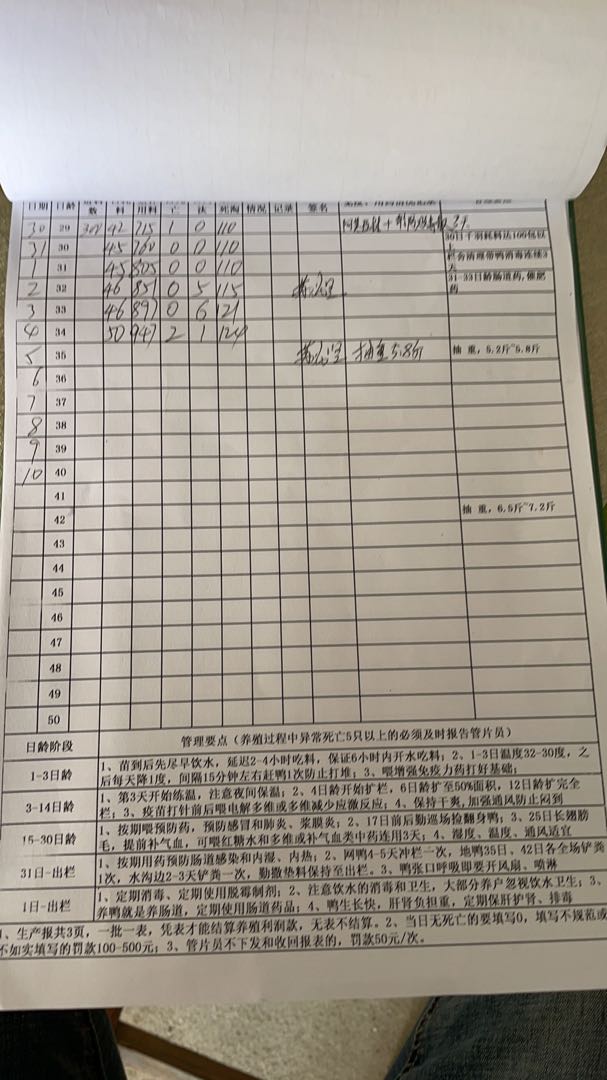 日期 日龄 数 料 用料 亡 汰 死淘 情况 记录 签名
30 29 304 42 715 1 0 110
31 30 45 760 0 0 110 30日千羽耗料达100包以上
1 31 45 805 0 0 110 栏舍清理带鸭消毒连续3天
2 32 46 851 0 5 115 31-33日龄肠道药,催肥药
3 33 46 897 0 6 121
4 34 50 947 2 1 124
5 35 抽重5.8斤 抽 重，5.2斤~5.8斤
6 36
7 37
8 38
9 39
10 40
41
42 抽 重，6.5斤~7.2斤
43
44
45
46
47
48
49
50
日龄阶段 管理要点（养殖过程中异常死亡5只以上的必须及时报告管片员）
1-3日龄 1、苗到后先尽早饮水，延迟2-4小时吃料，保证6小时内开水吃料；2、1-3日温度32-30度，之
后每天降1度，间隔15分钟左右赶鸭1次防止打堆；3、喂增强免疫力药打好基础；
3-14日龄 1、第3天开始练温，注意夜间保温；2、4日龄开始扩栏，6日龄扩至50%面积，12日龄扩完全
栏；3、疫苗打针前后喂电解多维或多维减少应激反应；4、保持干爽,加强通风防止闷到
15-30日龄 1、按期喂预防药，预防感冒和肺炎、浆膜炎；2、17日前后勤巡场捡翻身鸭；3、25日长翅膀
毛，提前补气血，可喂红糖水和多维或补气血类中药连用3天；4、湿度、温度、通风适宜
31日-出栏 1、按期用药预防肠道感染和内湿、内热；2、网鸭4-5天冲栏一次，地鸭35日、42日各全场铲粪
1次，水沟边2-3天铲粪一次，勤撒垫料保持至出栏。3、鸭张口呼吸即要开风扇、喷淋
1日-出栏 1、定期消毒、定期使用脱霉制剂；2、注意饮水的消毒和卫生，大部分养户忽视饮水卫生；3、
养鸭就是养肠道，定期使用肠道药品；4、鸭生长快，肝肾负担重，定期保肝护肾、排毒
1、生产报共3页，一批一表，凭表才能结算养殖利润款，无表不结算。2、当日无死亡的要填写0，填写不规范或
不如实填写的罚款100-500元；3、管片员不下发和收回报表的，罚款50元/次。